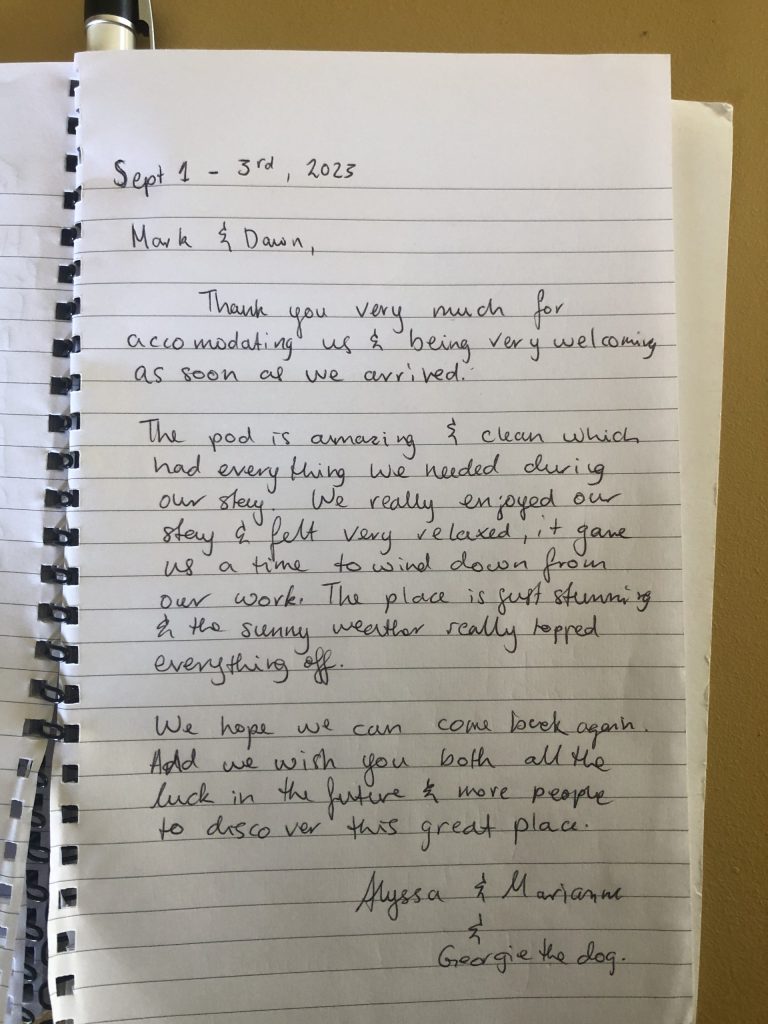 Sept 1 - 3rd, 2023
Mark & Dawn,
Thank you very much for
accomodating us & being very welcoming
as soon as we arrived.
The pod is amazing & clean which
had everything we needed during
our stay. We really enjoyed our
stay & felt very relaxed, it gave
us a time to wind down from
our work. The place is just stunning
& the sunny weather really topped
everything off.
We hope we can come back again.
And we wish you both all the
luck in the future & more people
to discover this great place.
Alyssa & Marianne
&
Georgie the dog.